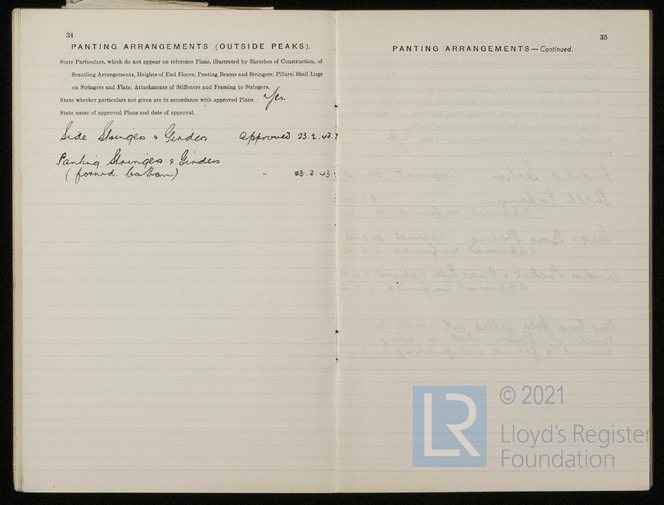 34
PANTING ARRANGEMENTS (OUTSIDE PEAKS).
State Particulars, which do not appear on reference Plans, illustrated by Sketches of Construction, of
Scantling Arrangements, Heights of End Floors; Panting Beams and Stringers; Pillars; Shell Lugs
on Stringers and Flats; Attachments of Stiffeners and Framing to Stringers.
State whether particulars not given are in accordance with approved Plans. Yes.
State name of approved Plans and date of approval.
Side Stringers & Girders approved 23.2.43.
Panting Stringers & Girders
(forward bottom) " 3.43.
35
PANTING ARRANGEMENTS—Continued.
LR
© 2021
Lloyd's Register
Foundation